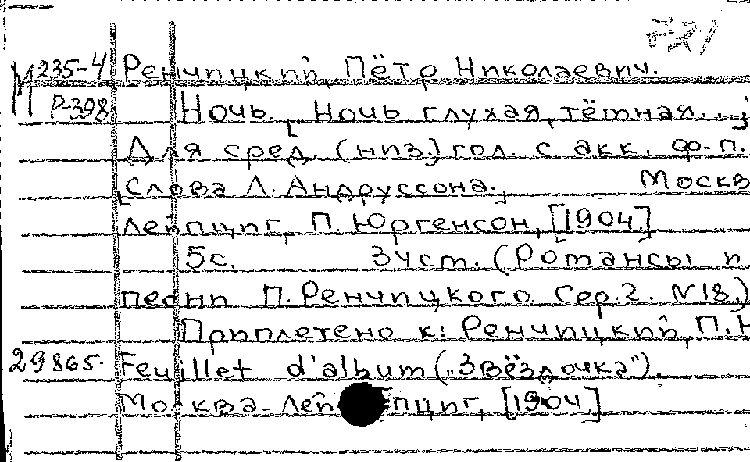 М 235-4 Ренчицкий, Пётр Николаевич.
Р-398 Ночь. [Ночь глухая, тёмная...;
Для сред. (низ.) гол. с акк. ф.-п.
[Слова Л. Андруссона.] Москв
Лейпциг, П. Юргенсон, [1904]
5с. 34ст. (Романсы и
песни П. Ренчицкого. Сер. 2. N18.)
Приплетено к: Ренчицкий, П.Н
29865. Feuillet d'album („Звёздочка").
Москва-Лейпциг, [1904]